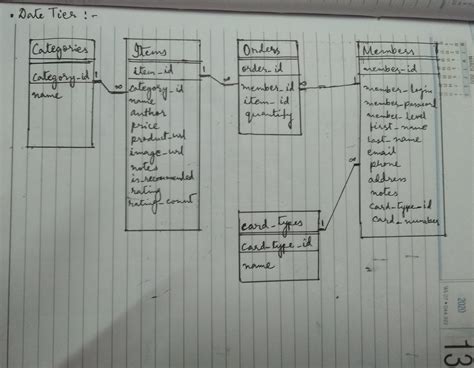 • Date Tier :-
Categories
category_id
name
1
∞
Items
item_id
category_id
name
author
price
product_url
image_url
notes
is_recommended
rating
rating_count
1
∞
Orders
order_id
member_id
item_id
quantity
∞
Members
member_id
member_login
member_password
member_level
first_name
last_name
email
phone
address
notes
card_type_id
card_number
∞
1
card_types
card_type_id
name
2020
13